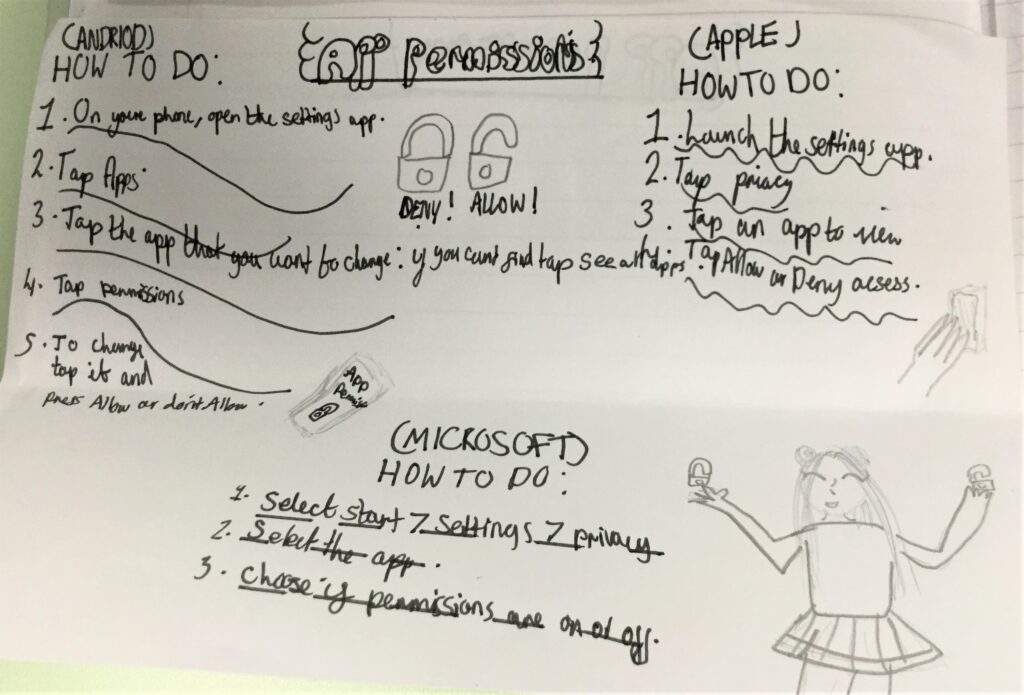 {App Permissions}
(ANDRIOD)
HOW TO DO:
1. On youre phone, open the settings app.
2. Tap Apps.
3. Tap the app that you want to change: if you cant find tap see all apps.
4. Tap permissions
5. To change
tap it and
press Allow or don't Allow.
DENY! ALLOW!
(APPLE)
HOW TO DO:
1. Launch the settings app.
2. Tap privacy
3. Tap an app to view
4. Tap Allow or Deny acsess.
App
Permiss
(MICROSOFT)
HOW TO DO:
1. Select start > settings > privacy
2. Select the app.
3. Choose if permissions are on or off.